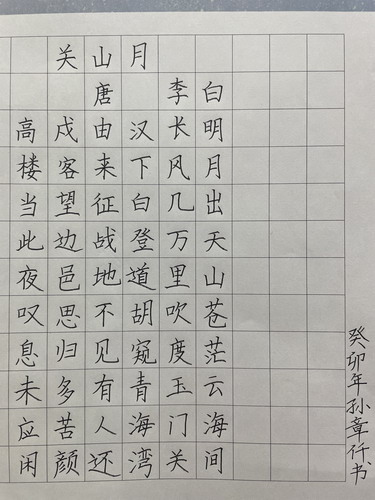 关山月
唐 李白
明月出天山苍茫云海间
长风几万里吹度玉门关
汉下白登道胡窥青海湾
由来征战地不见有人还
戍客望边邑思归多苦颜
高楼当此夜叹息未应闲
癸卯年孙章仟书